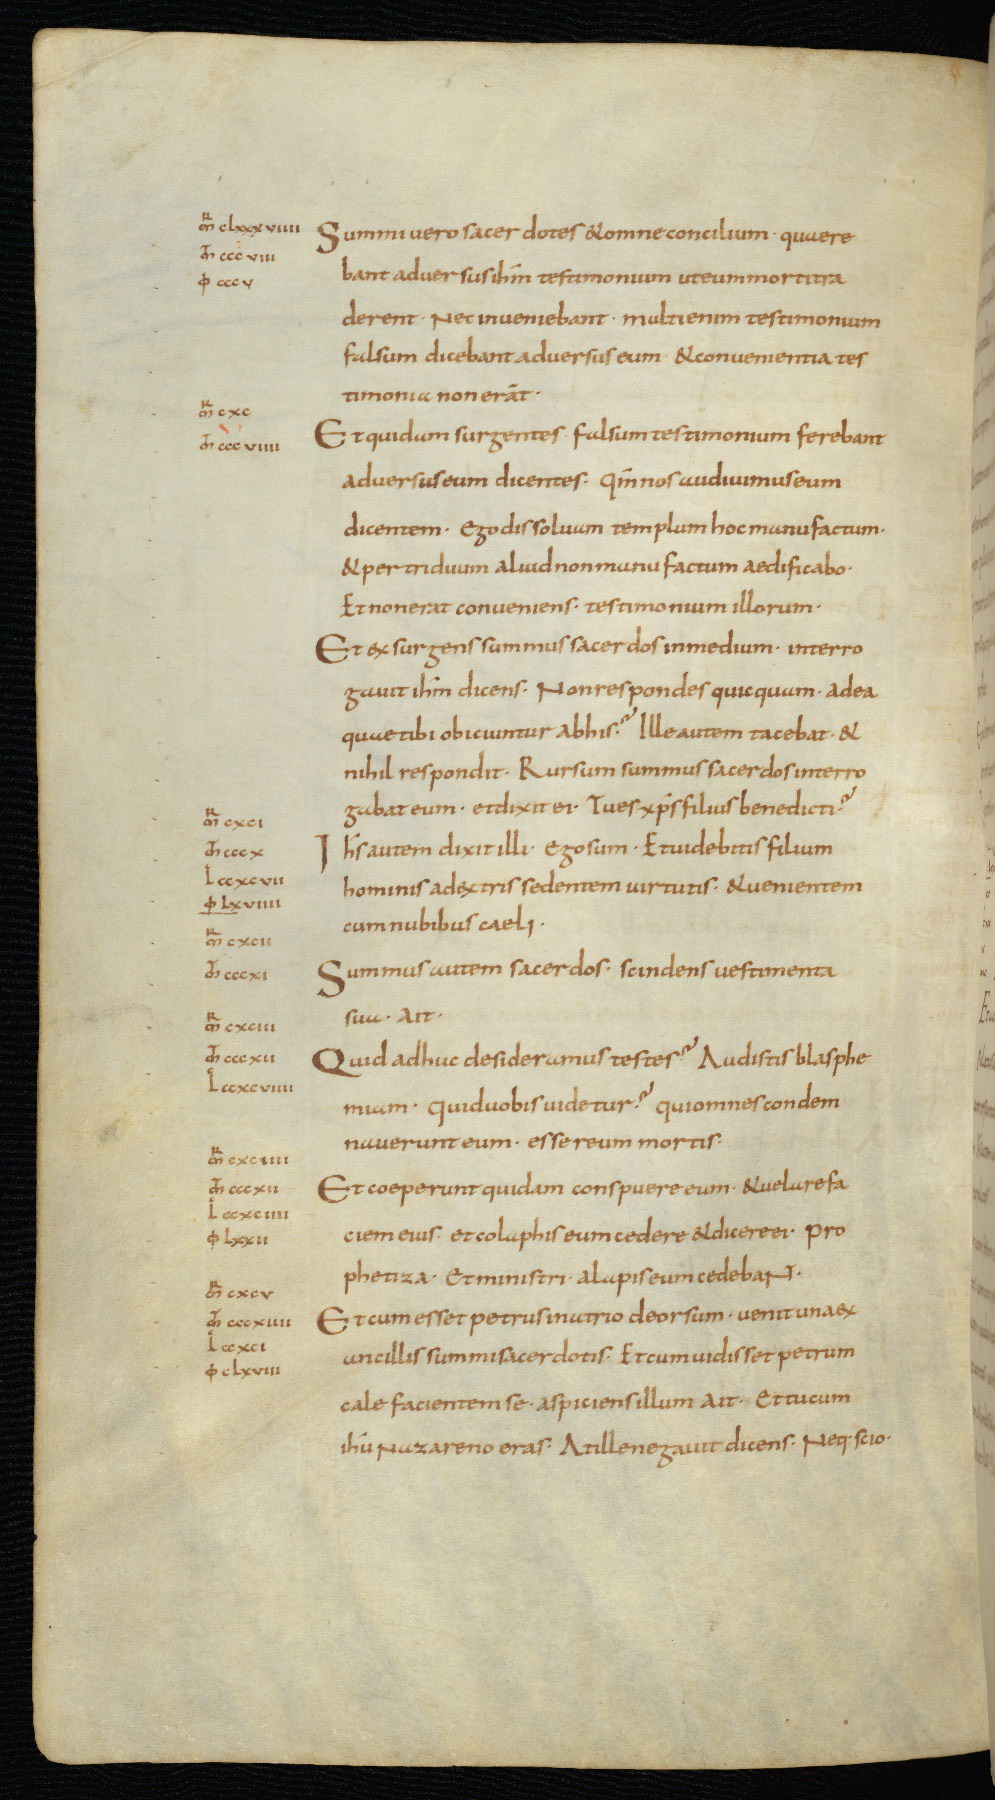 mr̄ clxxxviiii
Summi uero sacerdotes & omne concilium · quaere
mt̄ cccviii
bant aduersus ihm̄ testimonium ut eum morti tra
ɸ cccv
derent · Nec inueniebant · multi enim testimonium
falsum dicebant aduersus eum · & conuenientia tes
timonia non erāt ·
mr̄ cxc
Et quidam surgentes · falsum testimonium ferebant
mt̄ cccviiii
aduersus eum dicentes · Qm̄ nos audiuimus eum
dicentem · Ego dissoluam templum hoc manufactum ·
& per triduum aliud non manu factum aedificabo ·
Et non erat conueniens · testimonium illorum ·
Et exsurgens summus sacerdos in medium · interro
gauit ihm̄ dicens · Non respondes quicquam · ad ea
quae tibi obiciuntur ab his? Ille autem tacebat · &
nihil respondit · Rursum summus sacerdos interro
gabat eum · et dixit ei · Tu es xp̄s filius benedicti?
mr̄ cxci
mt̄ cccx
Ih̄s autem dixit illi · Ego sum · Et uidebitis filium
l ccxcvii
hominis a dextris sedentem uirtutis · & uenientem
ɸ lxviiii
cum nubibus caeli ·
mr̄ cxcii
mt̄ cccxi
Summus autem sacerdos · scindens uestimenta
sua · Ait ·
mr̄ cxciii
mt̄ cccxii
Quid adhuc desideramus testes? Audistis blasphe
l ccxcviiii
miam · Quid uobis uidetur? qui omnes condem
nauerunt eum · esse reum mortis ·
mr̄ cxciiii
mt̄ cccxii
Et coeperunt quidam conspuere eum · & uelare fa
l ccxciiii
ɸ lxxii
ciem eius · et colaphis eum cedere & dicere ei · Pro
phetiza · Et ministri · alapis eum cedebaNT ·
mr̄ cxcv
mt̄ cccxiiii
Et cum esset petrus in atrio deorsum · uenit una ex
l ccxci
ancillis summi sacerdotis · Et cum uidisset petrum
ɸ clxviii
calefacientem se · aspiciens illum Ait · Et tu cum
ihū Nazareno eras · At ille negauit dicens · Neq· scio ·